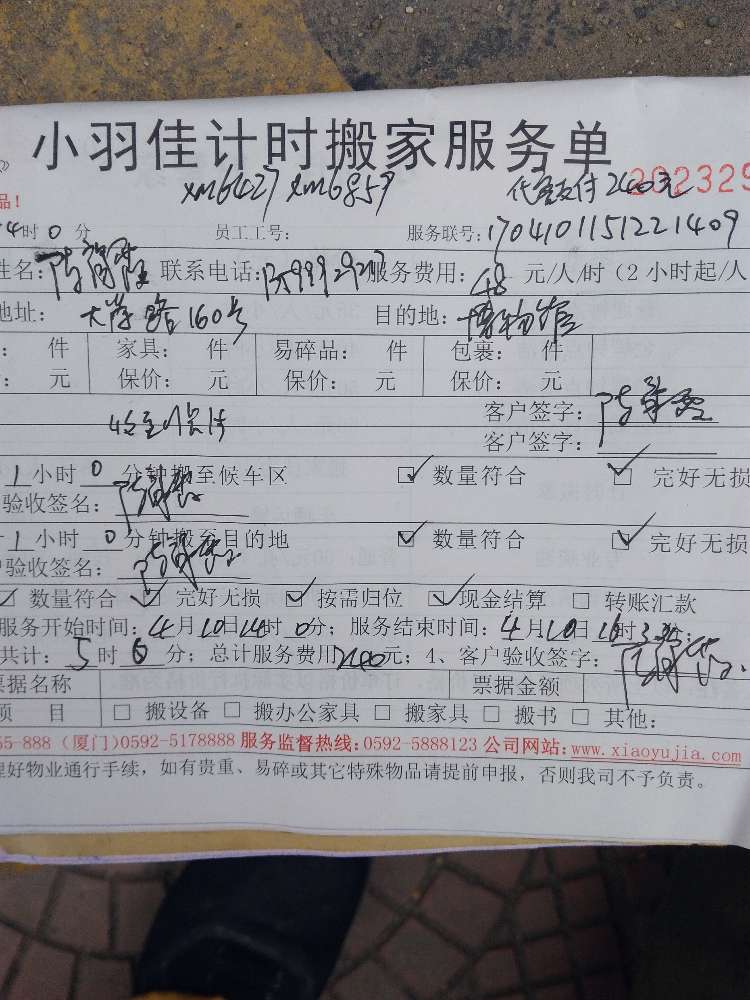 小羽佳计时搬家服务单
xm6427 xm6857 代客支付240元 202329
品!
4时0分 员工工号: 服务联号:1704101151221409
姓名: 联系电话: 服务费用:48元/人/时(2小时起/人
地址:大学路160号 目的地:博物馆
: 件 家具: 件 易碎品: 件 包裹: 件
: 元 保价: 元 保价: 元 保价: 元
客户签字:
客户签字:
1小时0分钟搬至候车区 ☑数量符合 ☑完好无损
验收签名:
1小时0分钟搬至目的地 ☑数量符合 ☑完好无损
户验收签名:
☑数量符合 ☑完好无损 ☑按需归位 ☑现金结算 □转账汇款
服务开始时间:4月10日14时0分;服务结束时间:4月10日16时30分;
共计:5时0分;总计服务费用240元;4、客户验收签字:
票据名称 票据金额
项目 □搬设备 □搬办公家具 □搬家具 □搬书 □其他:
55-888(厦门)0592-5178888 服务监督热线:0592-5888123 公司网站:www.xiaoyujia.com
理好物业通行手续,如有贵重、易碎或其它特殊物品请提前申报,否则我司不予负责。